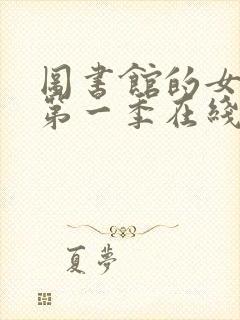 圖書館的女
第一季在綫
夏夢